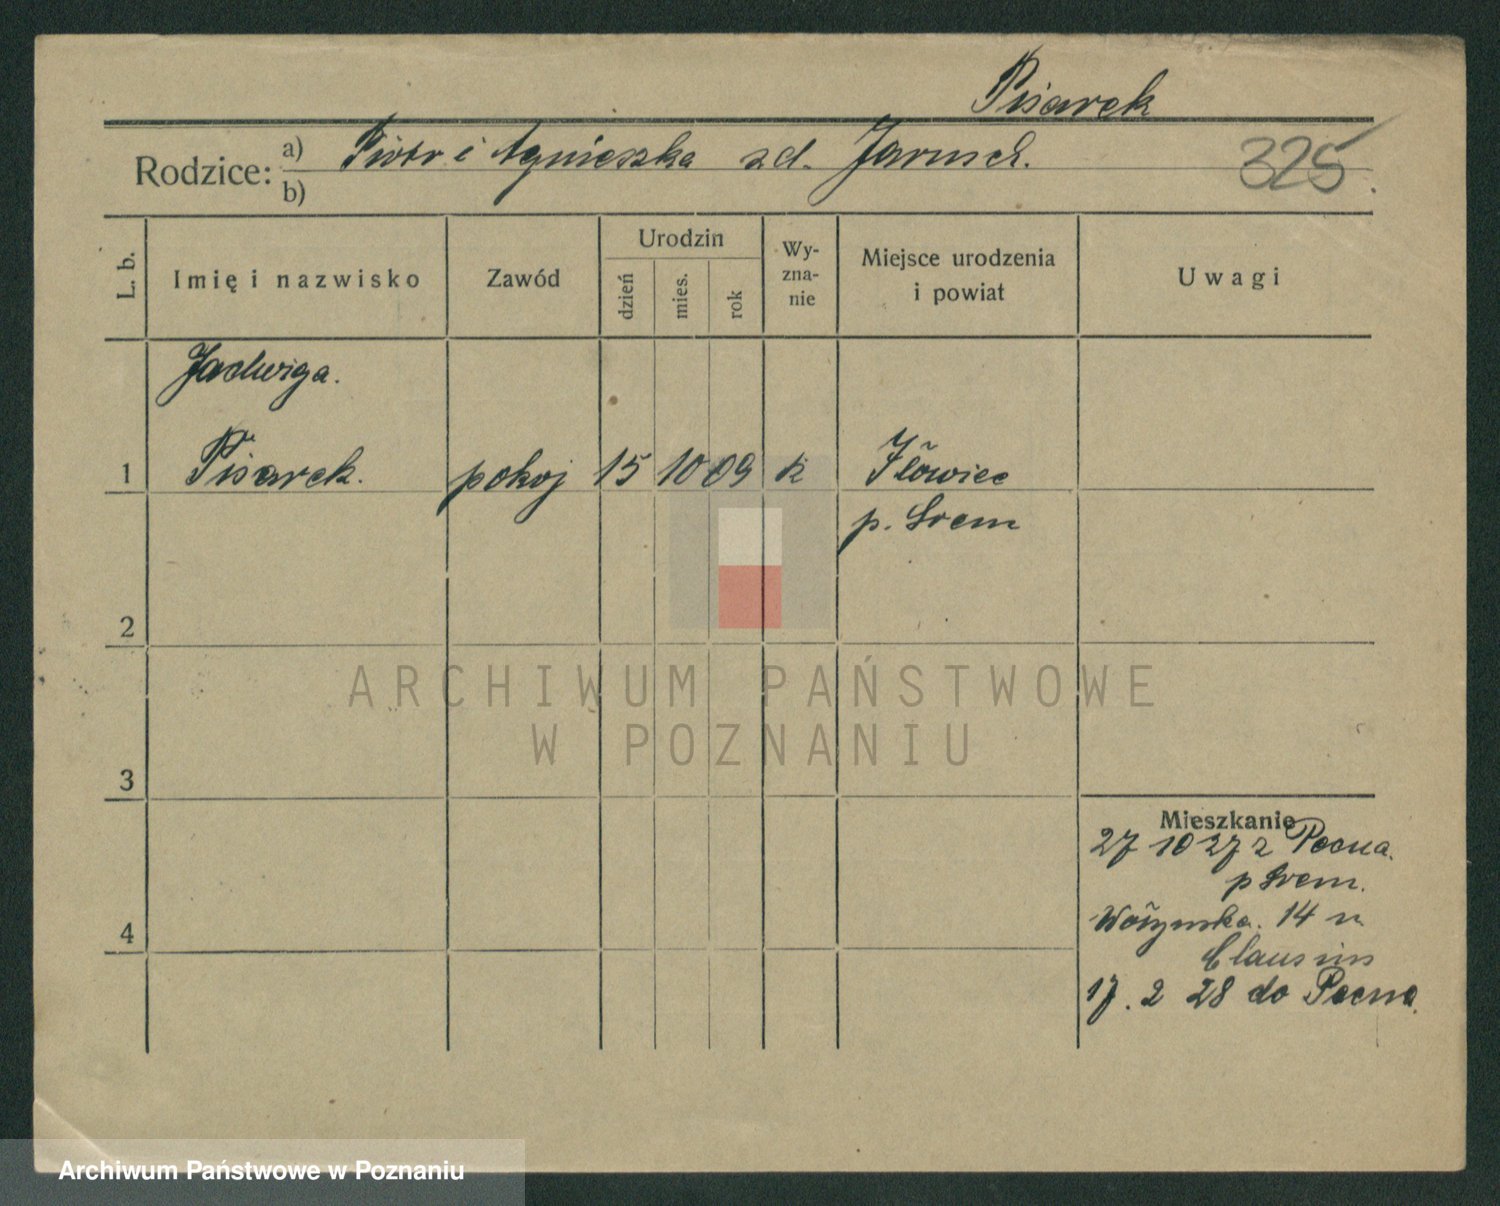 Pisarek
Rodzice: a) Piotr i Agnieszka zd. Jarusch. 325
b)
L. b. Imię i nazwisko Zawód Urodzin dzień mies. rok Wyzna-nie Miejsce urodzenia i powiat Uwagi
Jadwiga.
1 Pisarek. pokoj 15 10 09 k Iłowiec
p. Śrem
2
ARCHIWUM PAŃSTWOWE
W POZNANIU
3
Mieszkanie
27 10 27 z Pecna.
p Śrem.
14
4
17. 2 28 do Pecna.
Archiwum Państwowe w Poznaniu